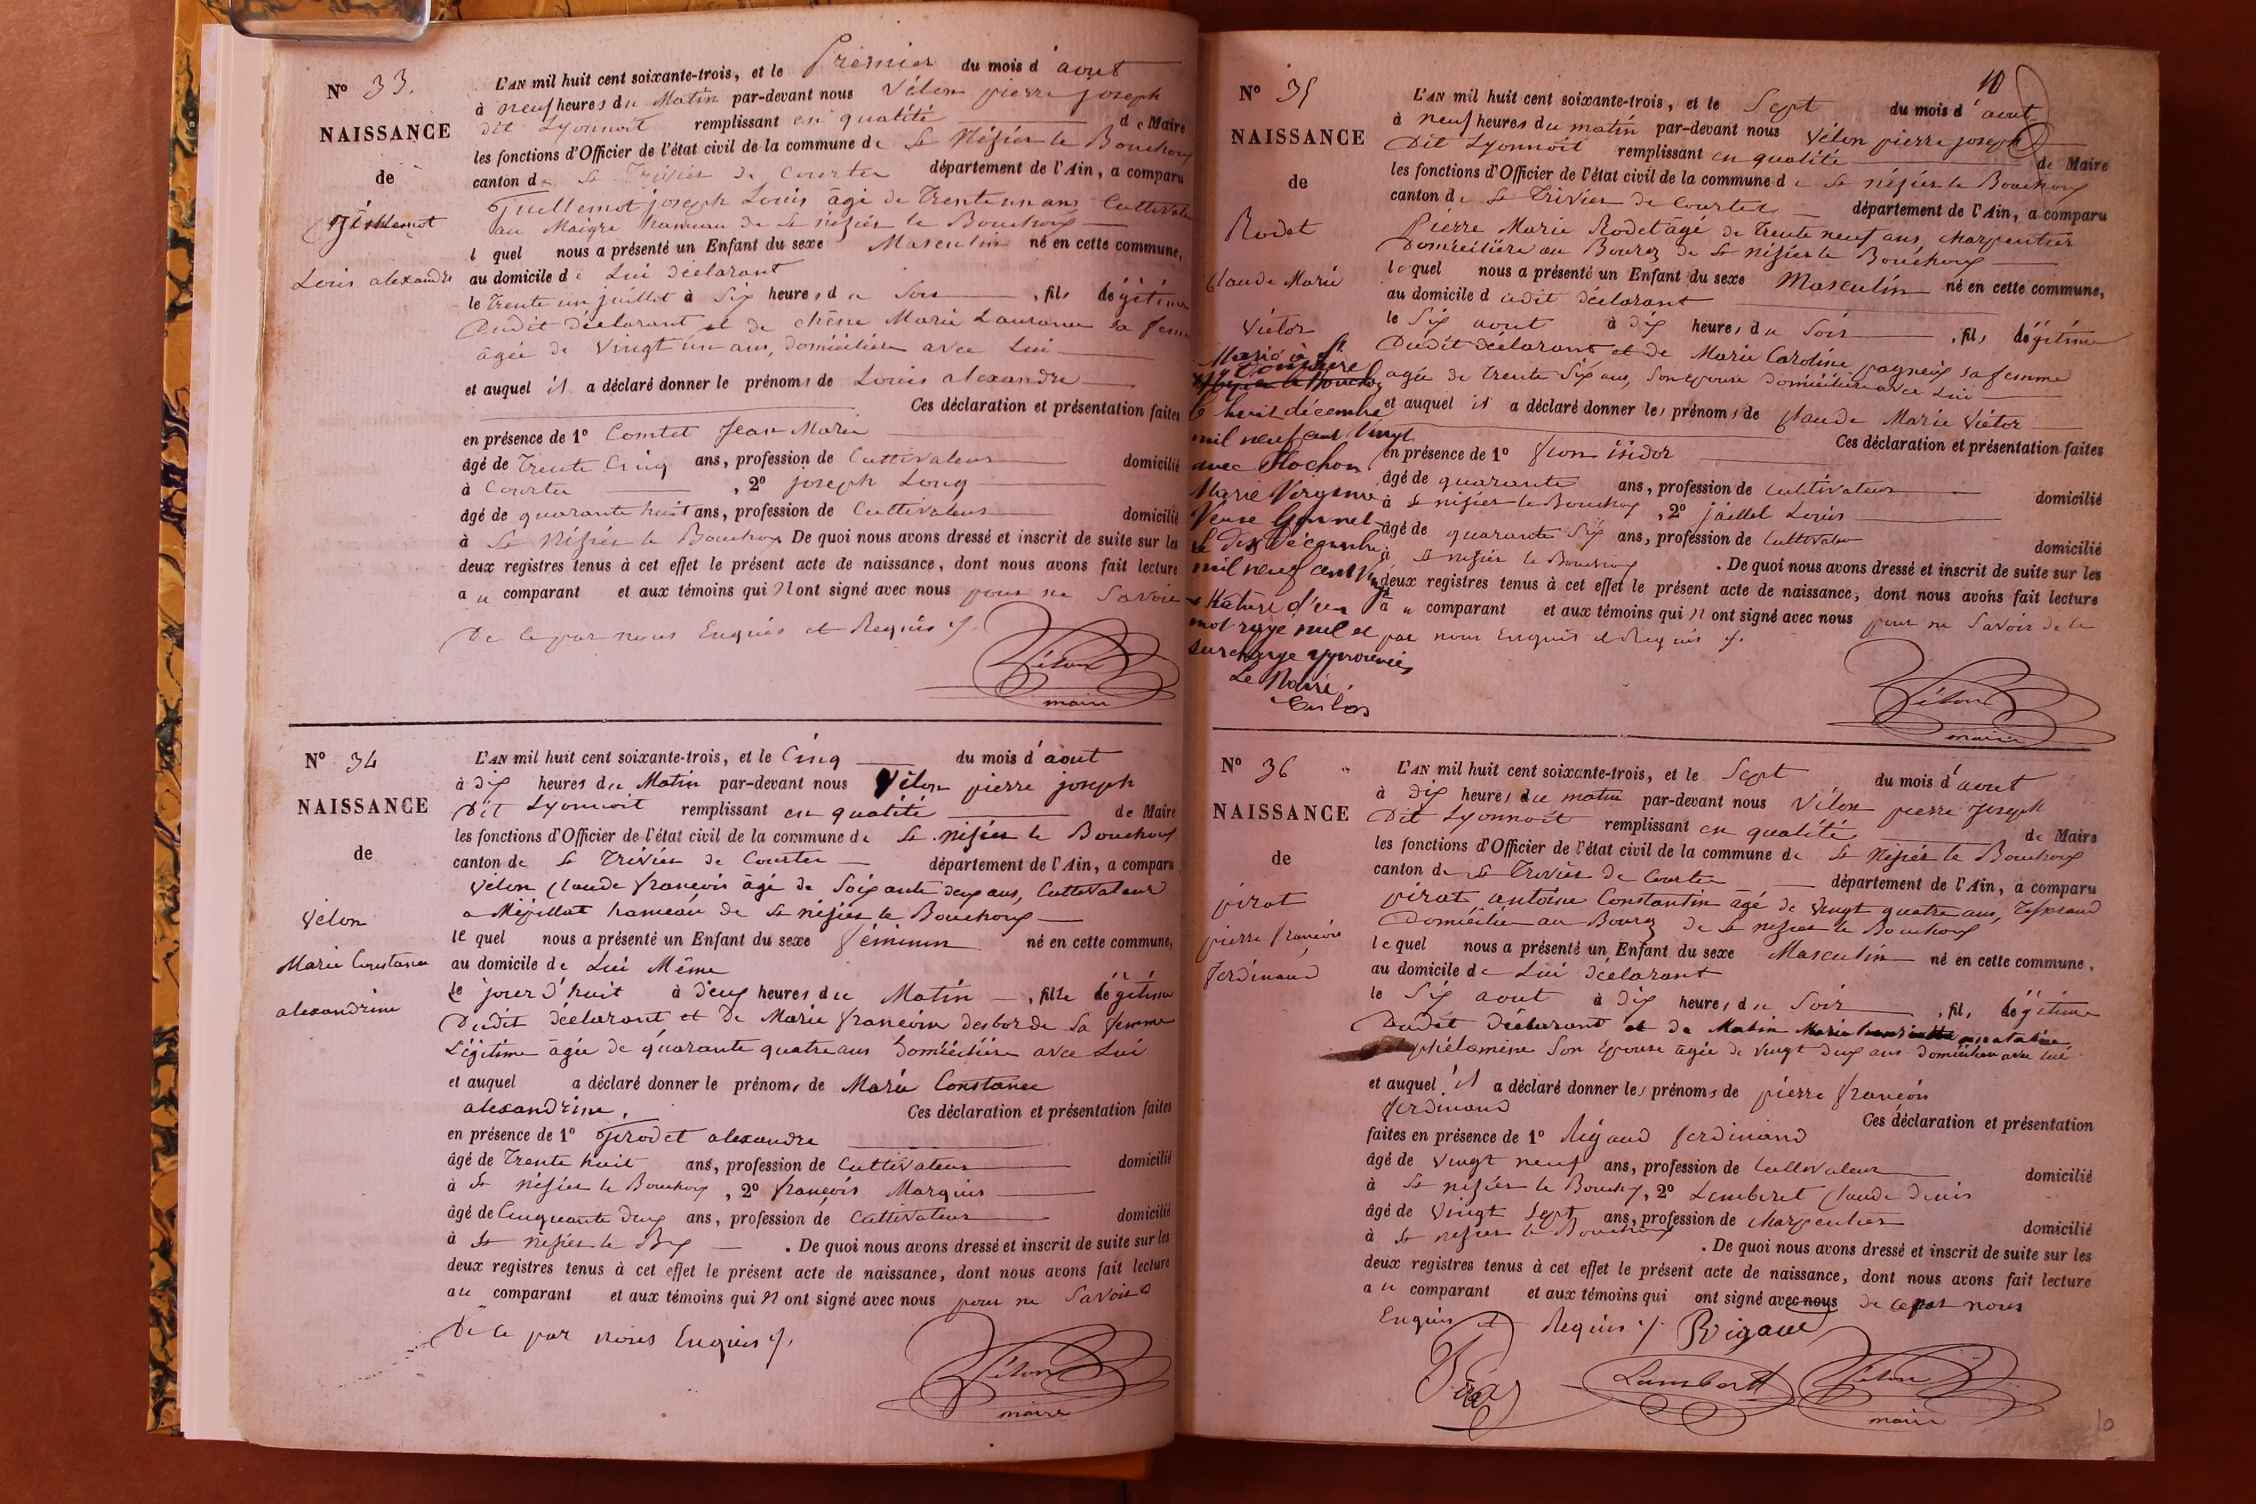 N° 33.
NAISSANCE
de
Guillemot
Louis alexandre
L'AN mil huit cent soixante-trois, et le Premier du mois d'aout
à neuf heures du Matin par-devant nous Vélon pierre joseph
dit Lyonnoit remplissant en qualité de Maire
les fonctions d'Officier de l'état civil de la commune de St Nizier le Bouchoux
canton de St Trivier de Courter département de l'Ain, a comparu
joseph Louis âgé de Trente un ans Cultivateur
au Maigre hameau de St nizier le Bouchoux
l quel nous a présenté un Enfant du sexe Masculin né en cette commune,
au domicile de Lui déclarant
le Trente un juillet à Six heures du Soir, fils légitime
Dudit déclarant et de chêne Marie Laurence sa femme
âgée de vingt un ans, domiciliée avec Lui
et auquel il a déclaré donner le prénoms de Louis alexandre
Ces déclaration et présentation faites
en présence de 1° Comtet Jean Marie
âgé de Trente Cinq ans, profession de Cultivateur domicilié
à Courter, 2° joseph Long
âgé de quarante huit ans, profession de Cultivateur domicilié
à St Nizier le Bouchoux De quoi nous avons dressé et inscrit de suite sur les
deux registres tenus à cet effet le présent acte de naissance, dont nous avons fait lecture
au comparant et aux témoins qui n ont signé avec nous pour ne Savoir
De ce par nous Enquis et Requis ./.
Vélon
maire
N° 34
NAISSANCE
de
Vélon
Marie Constance
alexandrine
L'AN mil huit cent soixante-trois, et le Cinq du mois d'aout
à dix heures du Matin par-devant nous Vélon pierre joseph
Dit Lyonnoit remplissant en qualité de Maire
les fonctions d'Officier de l'état civil de la commune de St nizier le Bouchoux
canton de St Trivier de Courter département de l'Ain, a comparu
Vélon Claude françois âgé de Soixante deux ans, Cultivateur
a Mépillat hameau de St nizier le Bouchoux
le quel nous a présenté un Enfant du sexe féminin né en cette commune,
au domicile de Lui Même
le jour d'huit à deux heures du Matin, fille légitime
Dudit déclarant et De Marie françoise desborde Sa femme
Légitime âgée de quarante quatre ans Domiciliée avec Lui
et auquel a déclaré donner le prénoms de Marie Constance
alexandrine, Ces déclaration et présentation faites
en présence de 1° alexandre
âgé de Trente huit ans, profession de Cultivateur domicilié
à St Nizier le Bouchoux, 2° françois Marguin
âgé de Cinquante Deux ans, profession de Cultivateur domicilié
à St nizier le Bx. De quoi nous avons dressé et inscrit de suite sur les
deux registres tenus à cet effet le présent acte de naissance, dont nous avons fait lecture
au comparant et aux témoins qui n ont signé avec nous pour ne Savoir
De ce par nous Enquis ./.
Vélon
maire
10
N° 35
NAISSANCE
de
Rodet
Claude Marie
Victor
Marié à St
le huit décembre
mil neuf cent vingt
avec Flochon
Marie Virginie
Veuve Gonnet
le dix décembre
mil neuf cent vingt
Rature d'un
mot rayé nul et
surcharge approuvées
Le Maire,
L'AN mil huit cent soixante-trois, et le Sept du mois d'aout
à neuf heures du matin par-devant nous Vélon pierre joseph
Dit Lyonnoit remplissant en qualité de Maire
les fonctions d'Officier de l'état civil de la commune de St nizier le Bouchoux
canton de St Trivier de Courter département de l'Ain, a comparu
Pierre Marie Rodet âgé de Trente neuf ans, charpentier
Domicilié au Bourg de St nizier le Bouchoux
lequel nous a présenté un Enfant du sexe Masculin né en cette commune,
au domicile dudit déclarant
le Six aout à dix heures du Soir, fils légitime
Dudit déclarant et de Marie Caroline pagneux sa femme
agée de Trente Six ans, Son épouse domiciliée avec Lui
et auquel il a déclaré donner les prénoms de Claude Marie Victor
Ces déclaration et présentation faites
en présence de 1° isidor
âgé de quarante ans, profession de Cultivateur domicilié
à St nizier le Bouchoux, 2° jaillet Louis
âgé de quarante Six ans, profession de Cultivateur domicilié
à St nizier le Bouchoux. De quoi nous avons dressé et inscrit de suite sur les
deux registres tenus à cet effet le présent acte de naissance, dont nous avons fait lecture
à u comparant et aux témoins qui n ont signé avec nous pour ne Savoir de ce
par nous Enquis et Requis ./.
Vélon
maire
N° 36
NAISSANCE
de
pirat
pierre françois
ferdinand
L'AN mil huit cent soixante-trois, et le Sept du mois d'aout
à dix heures du matin par-devant nous Vélon pierre Joseph
Dit Lyonnoit remplissant en qualité de Maire
les fonctions d'Officier de l'état civil de la commune de St Nizier le Bouchoux
canton de St Trivier de Courter département de l'Ain, a comparu
pirat antoine Constantin âgé de Vingt quatre ans, Tisserand
Domicilié au Bourg de St nizier le Bouchoux
lequel nous a présenté un Enfant du sexe Masculin né en cette commune,
au domicile de Lui déclarant
le Six aout à dix heures du Soir, fils légitime
Dudit Déclarant et de Matin Marie
philomène Son épouse âgée de vingt deux ans domiciliée avec lui
et auquel il a déclaré donner les prénoms de pierre françois
ferdinand Ces déclaration et présentation
faites en présence de 1° Rigaud ferdinand
âgé de vingt neuf ans, profession de Cultivateur domicilié
à St nizier le Bouchoux, 2° Lemberet Claude Denis
âgé de vingt Sept ans, profession de charpentier domicilié
à St nizier le Bouchoux. De quoi nous avons dressé et inscrit de suite sur les
deux registres tenus à cet effet le présent acte de naissance, dont nous avons fait lecture
a u comparant et aux témoins qui ont signé avec nous de ce par nous
Enquis et Requis ./. Rigaud
Lambert Vélon
maire
10